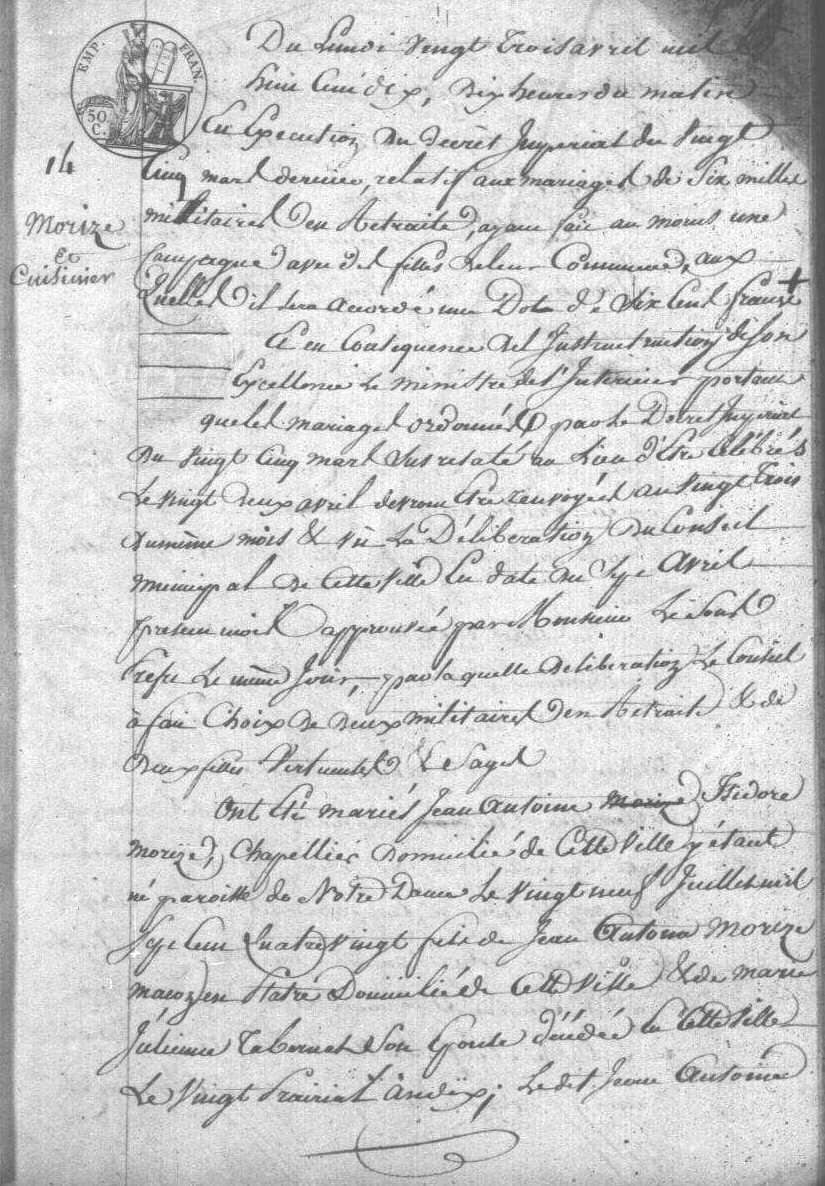 EMP. FRAN.
50 C.
14
Morize
et
Cuisinier
Du Lundi vingt trois avril mil
huit Cent dix, dix heures du matin
En Execution du decret Imperial du vingt
Cinq mars dernier, relatif aux mariages de Six milles
militaires en Retraite, ayant fait au moins une
Campagne avec des filles de leur Commune, aux
quelles il sera accordé une Dot de Six Cent francs +
Et en Consequence des Instructruction de Son
Excellence Le ministre de l'Interieur portant
que les mariages ordonnés par le Decret Imperial
du vingt Cinq mars susrelaté au Lieu d'être Célébrés
Le vingt deux avril devront Etre renvoyés au vingt Trois
du même mois & vu La Déliberation du Conseil
municipal de Cette ville En date du Sept Avril
present mois approuvée par Monsieur Le Sous
Prefet Le même Jour, par laquelle Deliberation Le Conseil
à fait Choix de deux militaires en Retraite & de
deux filles Vertueuses & Sages
Ont Eté mariés Jean Antoine Isidore
morize, Chapellier Domicilié de Cette ville y étant
né paroisse de Notre Dame Le vingt neuf Juillet mil
Sept Cent Quatre vingt fils de Jean Antoine Morize
maçon en Platre Domicilié de Cette ville & de marie
Julienne Tabernet Son Epouse décédée En Cette ville
Le vingt Prairial L'an dix; Le dit Jean Antoine